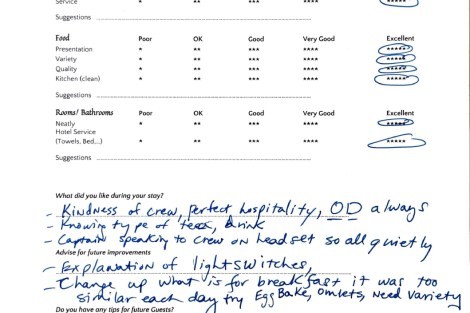 Service
Suggestions
Food Poor OK Good Very Good Excellent
Presentation * ** *** **** *****
Variety * ** *** **** *****
Quality * ** *** **** *****
Kitchen (clean) * ** *** **** *****
Suggestions
Rooms/ Bathrooms Poor OK Good Very Good Excellent
Neatly * ** *** **** *****
Hotel Service
(Towels, Bed...) * ** *** **** *****
Suggestions
What did you like during your stay?
- Kindness of crew, perfect hospitality, OD always
- Knowing type of drink
- Captain speaking to crew on headset so all quietly
Advise for future improvements
- Explanation of lightswitches,
- Change up what is for breakfast it was too
similar each day try Egg Bake, omlets, need variety
Do you have any tips for future Guests?